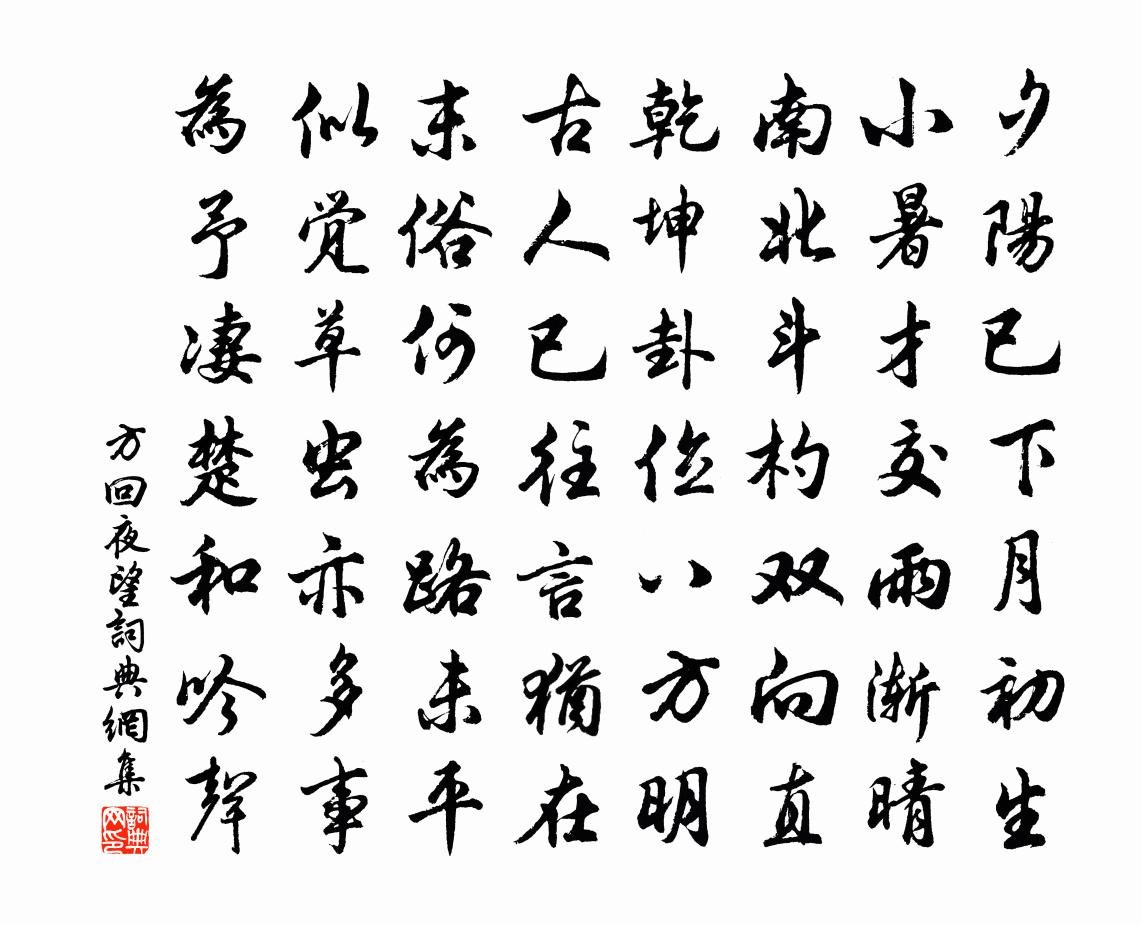 夕陽已下月初生
小暑才交雨漸晴
南北斗杓双向直
乾坤卦位八方明
古人已往言猶在
末俗何為路未平
似覚草虫亦多事
為予凄楚和吟聲
方回夜望詞典網集
詞典
网印